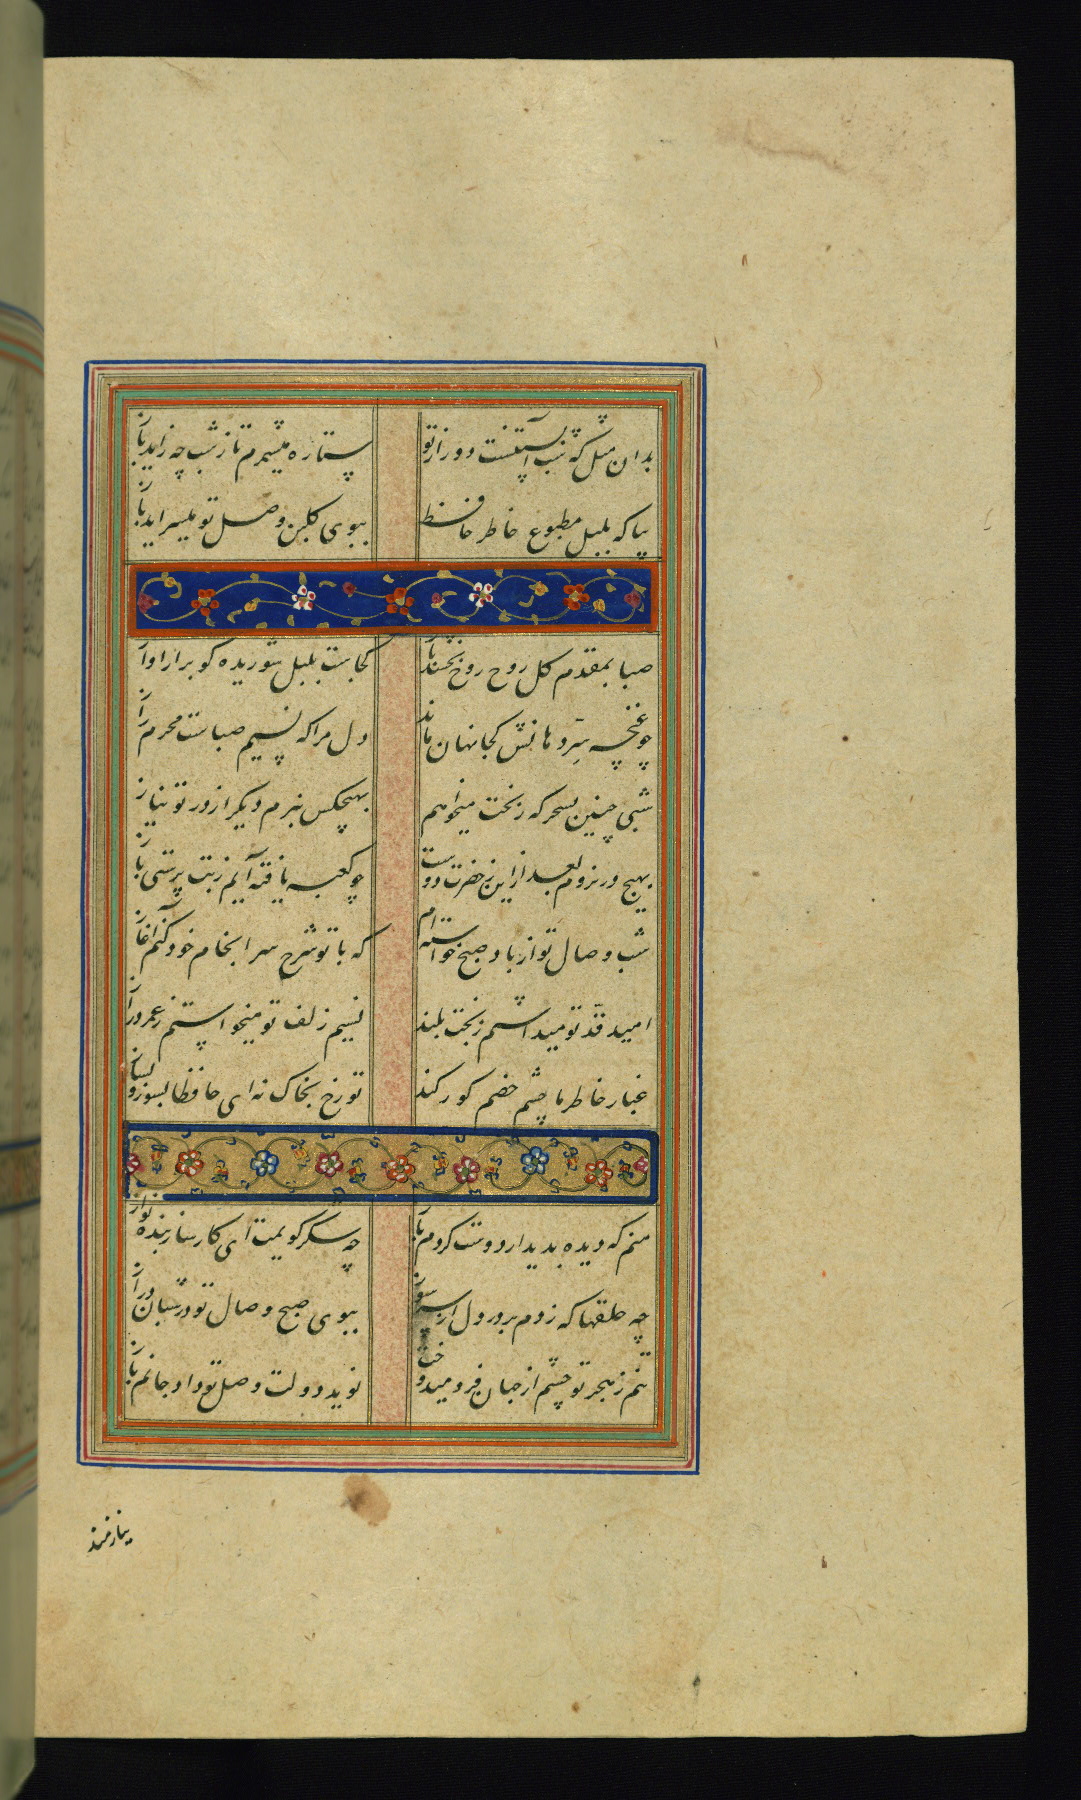 بدان مثل که شب آبستنست دور از تو ستاره میشمرم تا ز شب چه زاید باز
بیا که بلبل مطبوع خاطر حافظ ببوی کلبن وصل تو میسراید باز
صبا بمقدم کل روح روح بخشد باز کجاست بلبل شوریده کو برآر آواز
چو غنچه سرّ دهانش کجا نهان ماند دل مرا که نسیم صباست محرم راز
شبی چنین بسحر که ز بخت میخواهم
بهیچکس نبرم دیکر از در تو نیاز
بهیچ در نروم بعد ازین ز حضرت دوست چو کعبه یافته آیم ز بت پرستی باز
شب وصال تو از باد صبح خواسته‌ام که با تو شرح سرانجام خود کنم آغاز
امید قدّ تو میداشتم ز بخت بلند نسیم زلف تو میخواستم ز عمر دراز
غبار خاطر ما چشم خصم کور کند تو رخ بخاک نه ای حافظا بسوز و بساز
منم که دیده بدیدار دوست کردم باز چه شکر کویمت ای کارساز بنده نواز
چه حلقها که زدم بر در دل از سر سوز ببوی صبح وصال تو در شبان دراز
تنم ز هجر تو چشم از جهان فرو میدوخت نوید دولت وصل تو داد جانم باز
نیازمند